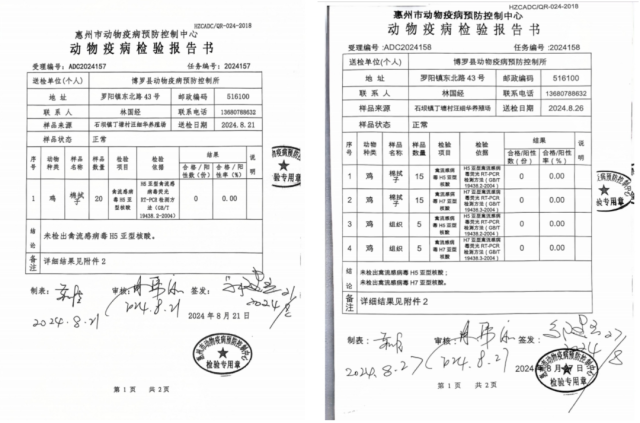 HZCADC/QR-024-2018
惠州市动物疫病预防控制中心
动物疫病检验报告书
受理编号:ADC2024157 任务编号:2024157
送检单位(个人) 博罗县动物疫病预防控制所
地址 罗阳镇东北路43号 邮政编码 516100
联系人 林国经 联系电话 13680788632
样品来源 石坝镇丁塘村汪细华养殖场 送检日期 2024.8.21
样品状态 正常
序号 动物种类 样品名称 样品数量 检验项目 检验依据 结果 说明
合格/阳性数(份) 合格/阳性率(%)
1 鸡 棉拭子 20 禽流感病毒H5亚型核酸 H5亚型禽流感病毒荧光RT-PCR检测方法(GB/T 19438.2-2004) 0 0.00
结论 未检出禽流感病毒H5亚型核酸。
备注 详细结果见附件2
制表: 审核: 签发:
2024.8.21 (2024.8.21
2024年8月21日
惠州市动物疫病预防控制中心
检验专用章
第1页 共2页
HZCADC/QR-024-2018
惠州市动物疫病预防控制中心
动物疫病检验报告书
受理编号:ADC2024158 任务编号:2024158
送检单位(个人) 博罗县动物疫病预防控制所
地址 罗阳镇东北路43号 邮政编码 516100
联系人 林国经 联系电话 13680788632
样品来源 石坝镇丁塘村汪细华养殖场 送检日期 2024.8.26
样品状态 正常
序号 动物种类 样品名称 样品数量 检验项目 检验依据 结果 说明
合格/阳性数(份) 合格/阳性率(%)
1 鸡 棉拭子 15 禽流感病毒H5亚型核酸 H5亚型禽流感病毒荧光RT-PCR检测方法(GB/T 19438.2-2004) 0 0.00
2 鸡 棉拭子 15 禽流感病毒H7亚型核酸 H7亚型禽流感病毒荧光RT-PCR检测方法(GB/T 0 0.00
3 鸡 组织 5 禽流感病毒H5亚型核酸 H5亚型禽流感病毒荧光RT-PCR检测方法(GB/T 19438.2-2004) 0 0.00
4 鸡 组织 5 禽流感病毒H7亚型核酸 H7亚型禽流感病毒荧光RT-PCR检测方法(GB/T 0 0.00
结论 未检出禽流感病毒H5亚型核酸;
未检出禽流感病毒H7亚型核酸。
备注 详细结果见附件2
制表: 审核: 签发:
2024.8.27 (2024.8.27
惠州市动物疫病预防控制中心
检验专用章
第1页 共2页